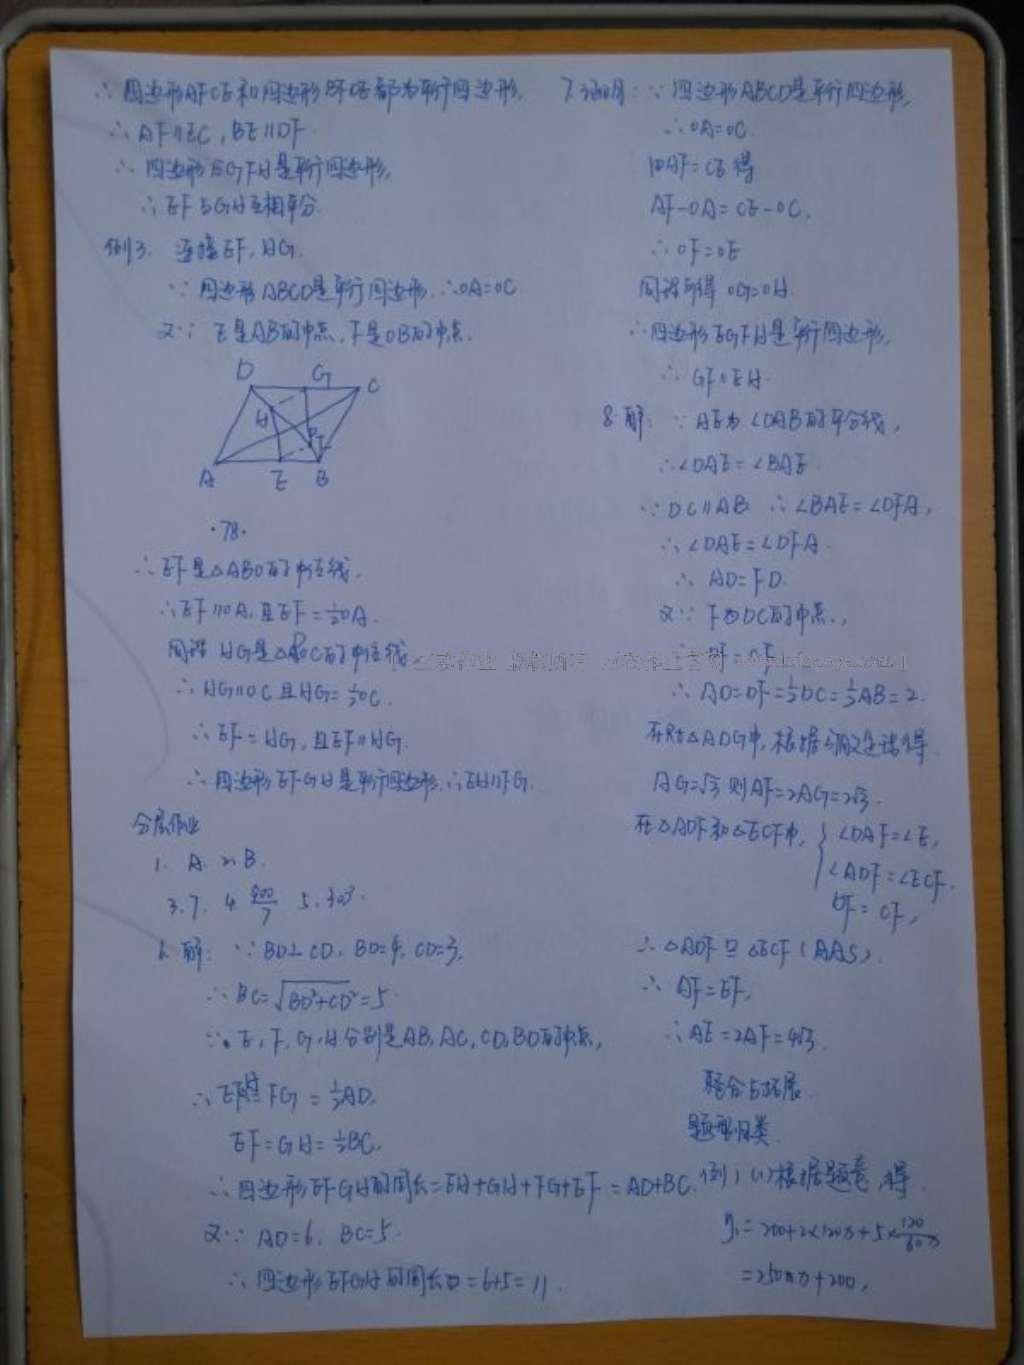 ∴四边形AFCE和四边形BFDE都为平行四边形,
∴AF∥EC,BE∥DF.
∴四边形EGFH是平行四边形,
∴EF与GH互相平分.
例3. 连接EF,HG.
∵四边形ABCD是平行四边形.∴OA=OC
又∵E是AB的中点,F是OB的中点.
D G C
H
F
A E B
·78·
∴EF是△ABO的中位线.
∴EF∥OA,且EF=½OA.
同理 HG是△DOC的中位线
∴HG∥OC且HG=½OC.
∴EF=HG,且EF∥HG.
∴四边形EFGH是平行四边形.∴EH∥FG.
分层作业
1. A 2. B.
3. 7. 4 5. 30°.
6. 解:∵BD⊥CD,BD=4,CD=3,
∴BC=√BD²+CD²=5.
∵E,F,G,H分别是AB,AC,CD,BD的中点,
∴EH=FG=½AD.
EF=GH=½BC.
∴四边形EFGH的周长=EH+GH+FG+EF=AD+BC.
又∵AD=6,BC=5.
∴四边形EFGH的周长=6+5=11.
7. 证明:∵四边形ABCD是平行四边形,
∴OA=OC.
由AF=CE得
AF-OA=CE-OC.
∴OF=OE
同理可得OG=OH.
∴四边形EGFH是平行四边形,
∴GF∥EH.
8. 解:∵AE为∠DAB的平分线,
∴∠DAE=∠BAE.
∵DC∥AB ∴∠BAE=∠DFA,
∴∠DAE=∠DFA.
∴AD=FD.
又∵F为DC的中点,
∴AD=DF=½DC=½AB=2.
在Rt△ADG中,根据勾股定理得
AG=√3则AF=2AG=2√3.
在△ADF和△ECF中,
∠DAF=∠E,
∠ADF=∠ECF.
DF=CF,
∴△ADF≌△ECF(AAS).
∴AF=EF,
∴AE=2AF=4√3.
整合与拓展
题型归类
例1 (1)根据题意,得
y₁=200+2×120x+5×120/60x
=250x+200,